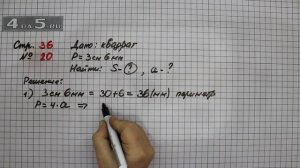 4DA5.RU
Стр. 36
№ 20
Дано: квадрат
P = 3см 6мм
Найти: S - ?, a - ?
Решение:
1) 3см 6мм = 30+6 = 36(мм) периметр
P = 4·a ⇒